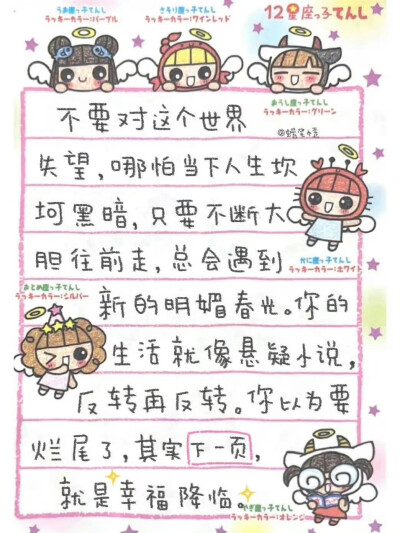 12星座っ子てんし
うお座っ子てんし
ラッキーカラー:パープル
さそり座っ子てんし
ラッキーカラー:ワインレッド
おうし座っ子てんし
ラッキーカラー:グリーン
不要对这个世界
失望,哪怕当下人生坎
坷黑暗,只要不断大
胆往前走,总会遇到
かに座っ子てんし
ラッキーカラー:ホワイト
おとめ座っ子てんし
ラッキーカラー:シルバー
新的明媚春光。你的
生活就像悬疑小说,
反转再反转。你以为要
烂尾了,其实下一页,
就是幸福降临。
やぎ座っ子てんし
ラッキーカラー:オレンジ